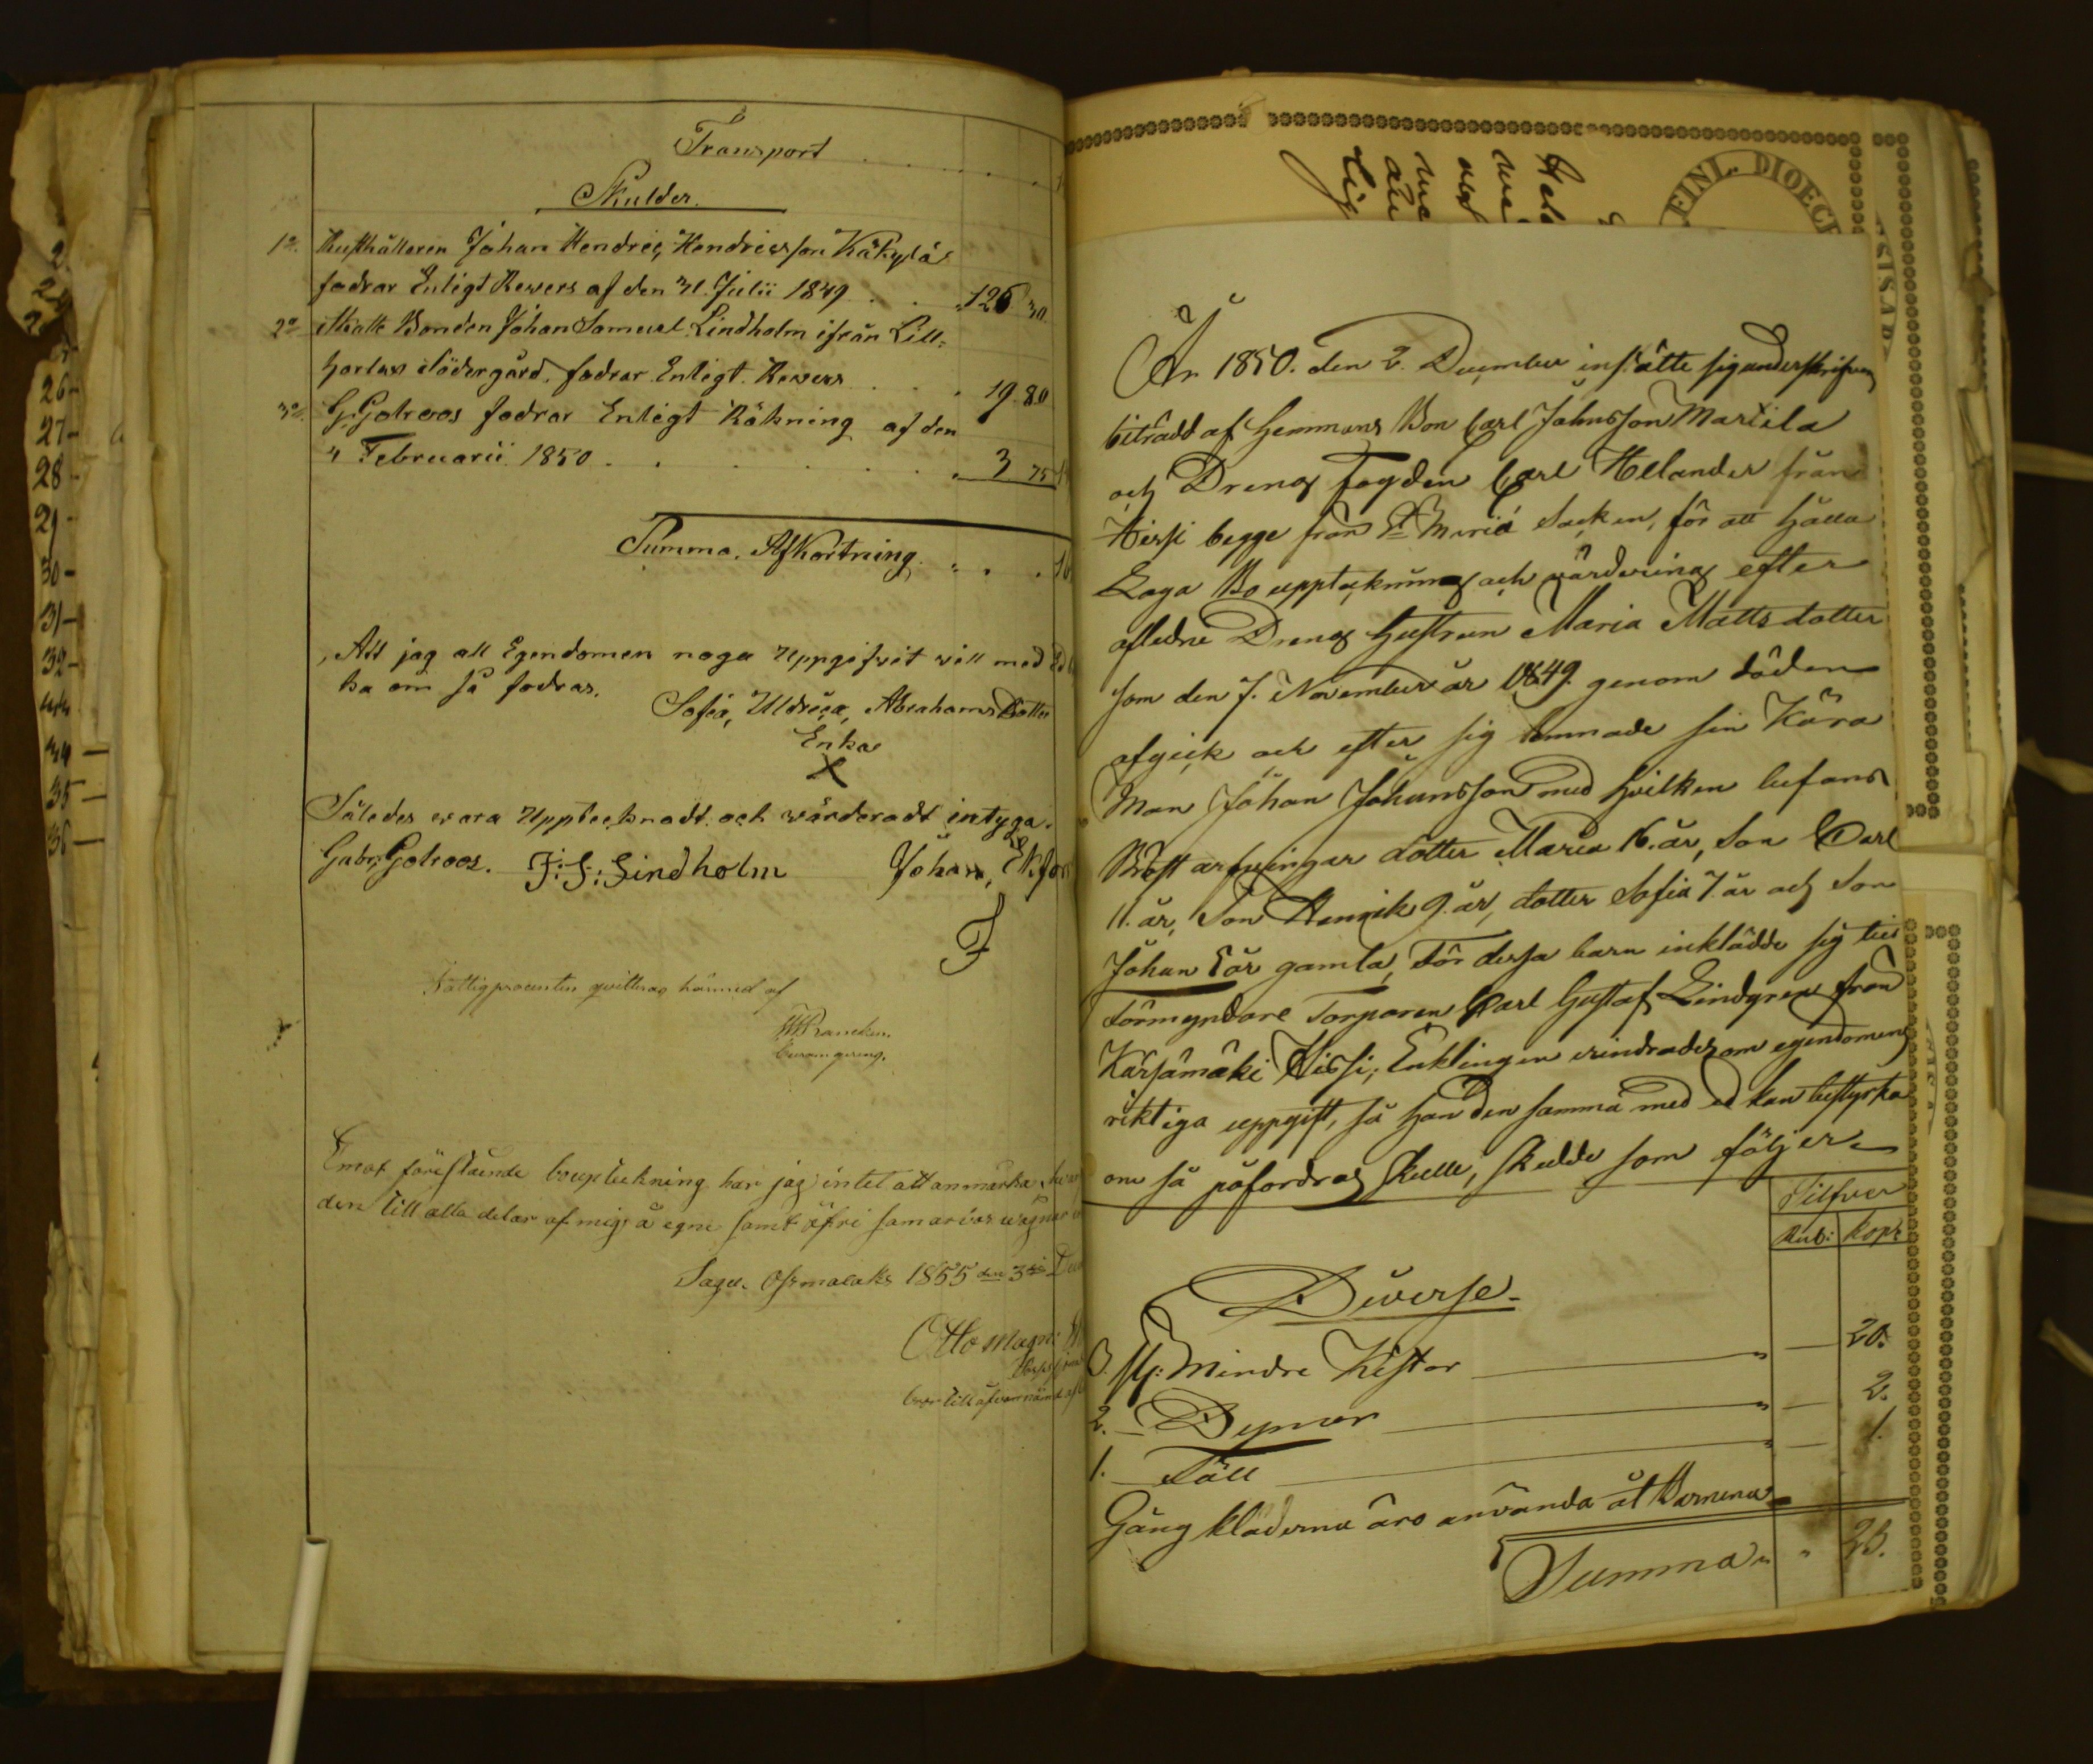 Transport
Skulder.
1o. Rusthållaren Johan Hendric, Hendricsson Käkylä
fodrar Enligt Revers af den 31. Julii 1849 . . . 126 30.
2o Skatte Bonden Johan Samuel Lindholm ifrån Lill-
horlax Södergård. fodrar Enligt Revers . . . 19. 80
3o. G, Golroos fodrar Enligt Räkning af den
4 Februarii 1850 . . . 3 75
Summa. Afkortning . . .
Att jag all Egendomen noga Uppgifvit vill med Ed
ka om så fodras.
Sofia, Uldrica, Abrahams Dotter
Enka
X
Således vara Uppteknadt. och värderadt intyga.
Gabr. Golroos. J: S: Lindholm Johan,
Fattigprocenten qvitteras härmed af
Emot förestående bouptekning har jag intet att anmärka
den till alla delar af mig, å egne samt öfri
Sagu. Osmalaks 1855 den 3die
Otto Magn:
26-
27-
28-
29-
30-
31-
32-
34-
35-
36-
FINL. DIOECE
År 1850. den 2. December instälte sig underskrifven
biträdd af Hemmans Bon Carl Johnsson Martila
och Dreng Fogden Carl Helander från
Hirsi begge från St Mariæ Socken, för att hålla
Laga Bo upptekning och värdering efter
afledne Dreng Hustrun Maria Mattsdotter
som den 7. November år 1849. genom döden
afgick och efter sig lemnade sin Kära
Man Johan Johansson med hvilken befans
Bröst arfvingar dotter Maria 16. år, Son Carl
11. år, Son Henrik 9. år, dotter Sofia 7. år och Son
Johan 5 år gamla, För dessa barn inklädde sig till
Förmyndare Torparen Carl Gustaf Lindgren från
Kärsämäki Hissi; Enklingen erindrades om egendomens
riktiga uppgift, så han den samma med ed kan bestyrka
om så påfordras skulle, skedde som följer
Silfver
Rub: Kop:
Diverse
3. st: Mindre Kistor — 20.
2. — Dynor — 2.
1. — Fäll — 1.
Gång kläderna äro använda åt Barnena
Summa " " 23.